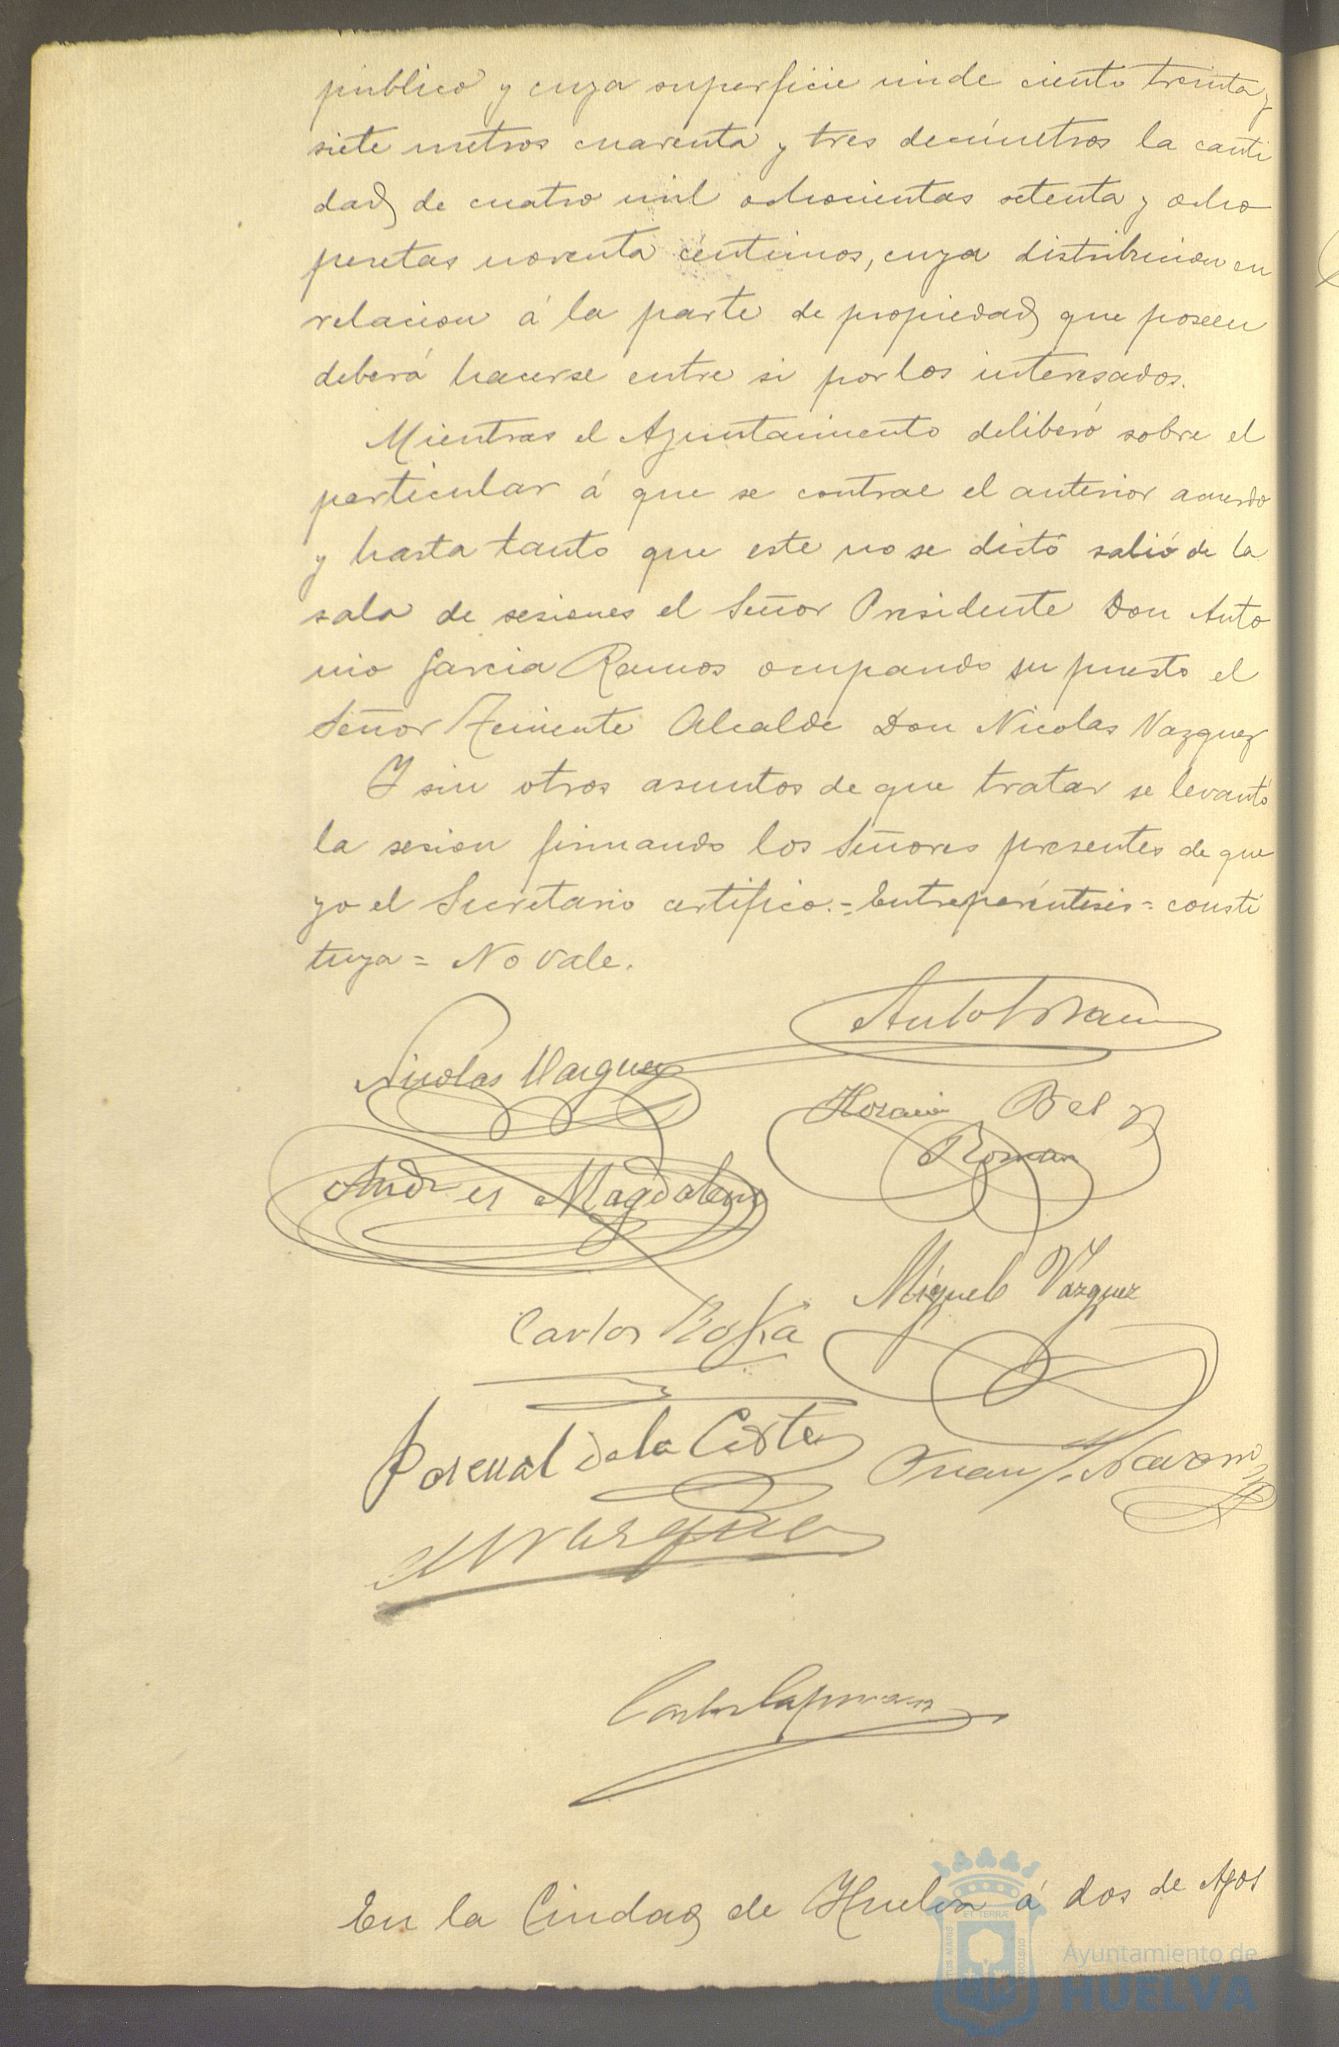 publico y cuya superficie mide ciento treinta y
siete metros cuarenta y tres decímetros la canti
dad de cuatro mil ochocientas setenta y ocho
pesetas noventa centimos, cuya distribucion en
relacion á la parte de propiedad que poseen
deberá hacerse entre si por los interesados.
Mientras el Ayuntamiento deliberó sobre el
particular á que se contrae el anterior acuerdo
y hasta tanto que este no se dictó salió de la
sala de sesiones el Señor Presidente Don Anto
nio Garcia Ramos ocupando su puesto el
Señor Teniente Alcalde Don Nicolas Vazquez
Y sin otros asuntos de que tratar se levantó
la sesion firmando los Señores presentes de que
yo el Secretario certifico.= Entreparéntesis = consti
tuya = No vale.
Nicolas Vazquez
Horacio Bel
Roman
Andres Magdaleno
Miguel Vázquez
Carlos
Pascual de la Corte
Juan J. Navarro
Vazquez
En la Ciudad de Huelva á dos de Agos
Ayuntamiento de
HUELVA